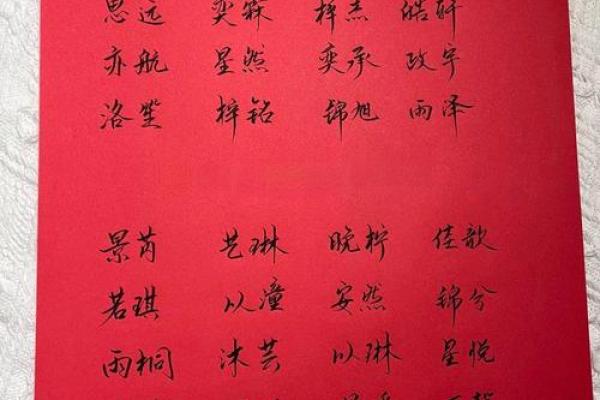 思远 奕霖 梓杰 皓轩
亦航 星然 奕承 政宇
洛笙 梓铭 锦旭 雨泽
景芮 艺琳 晚柠 佳歆
若琪 以潼 安然 锦兮
雨桐 沐芸 以琳 星悦